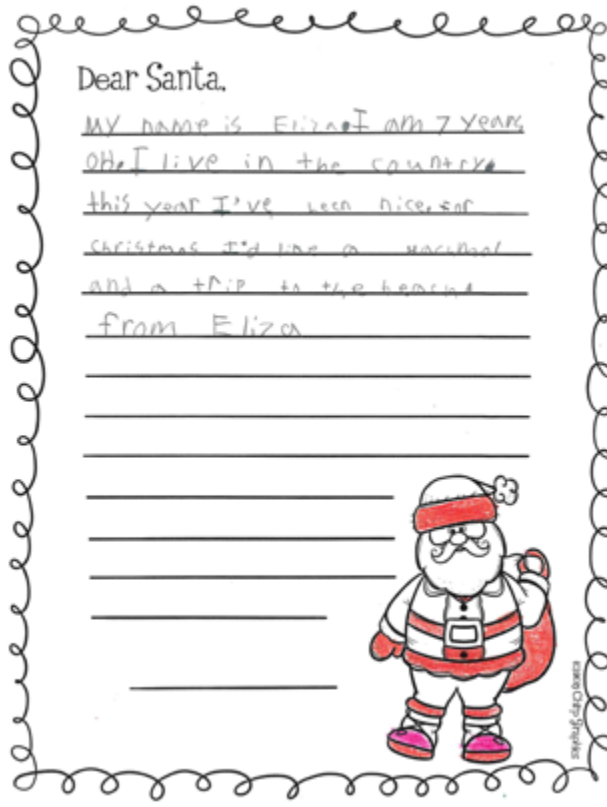 Dear Santa,
My name is Eliza. I am 7 years
old. I live in the country.
this year I've been nice. for
christmas I'd like a
and a trip to the beach.
from Eliza